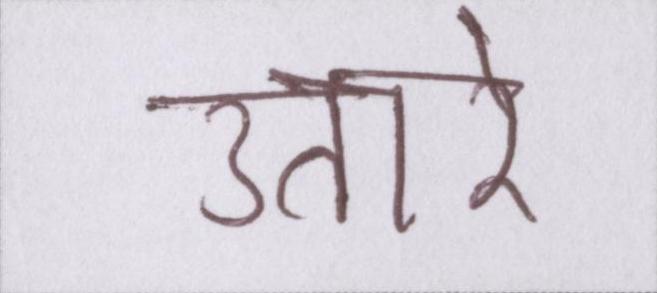 उतारे